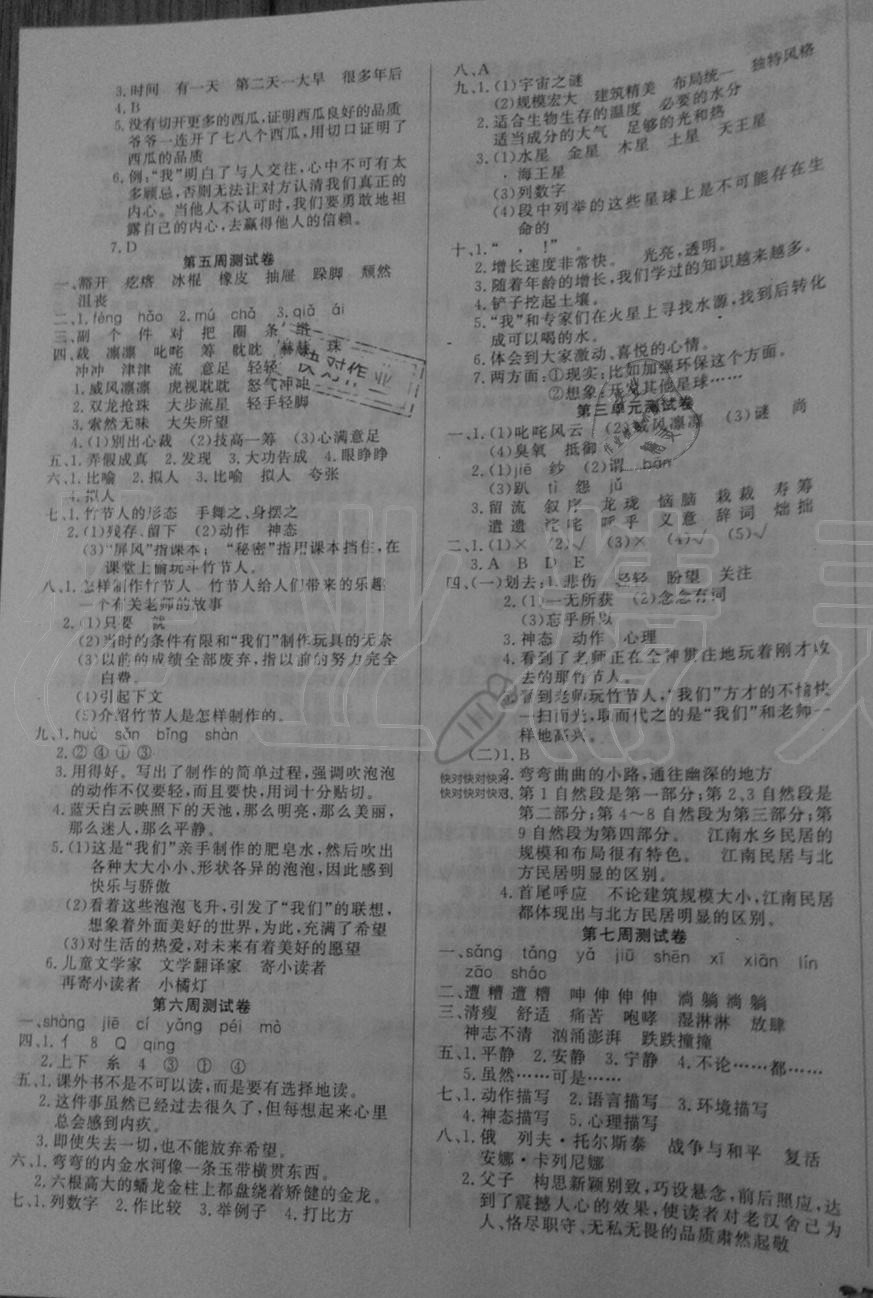 3.时间 有一天 第二天一大早 很多年后
4.B
5.没有切开更多的西瓜,证明西瓜良好的品质
爷爷一连开了七八个西瓜,用切口证明了
西瓜的品质
6.例:“我”明白了与人交往,心中不可有太
多顾忌,否则无法让对方认清我们真正的
内心。当他人不认可时,我们要勇敢地袒
露自己的内心,去赢得他人的信赖。
7.D
第五周测试卷
一、豁开 疙瘩 冰棍 橡皮 抽屉 跺脚 颓然
沮丧
二、1.féng hǎo 2.mú chà 3.qiǎ ái
三、副 个 件 对 把 圈 条
四、裁 凛凛 叱咤 筹 眈眈 赫赫 珠
冲冲 津津 流 意足 轻轻
1.威风凛凛 虎视眈眈 怒气冲冲
2.双龙抢珠 大步流星 轻手轻脚
3.索然无味 大失所望
4.(1)别出心裁 (2)技高一筹 (3)心满意足
五、1.弄假成真 2.发现 3.大功告成 4.眼睁睁
六、1.比喻 2.拟人 3.比喻 拟人 夸张
4.拟人
七、1.竹节人的形态 手舞之、身摆之
2.(1)残存、留下 (2)动作 神态
(3)“屏风”指课本; “秘密”指用课本挡住,在
课堂上偷玩斗竹节人。
八、1.怎样制作竹节人 竹节人给人们带来的乐趣
一个有关老师的故事
2.(1)只要 就
(2)当时的条件有限和“我们”制作玩具的无奈
(3)以前的成绩全部废弃,指以前的努力完全
白费。
(4)引起下文
(5)介绍竹节人是怎样制作的。
九、1.huò sǎn bǐng shàn
2.②④①③
3.用得好。写出了制作的简单过程,强调吹泡泡
的动作不仅要轻,而且要快,用词十分贴切。
4.蓝天白云映照下的天池,那么明亮,那么美丽,
那么迷人,那么平静。
5.(1)这是“我们”亲手制作的肥皂水,然后吹出
各种大大小小、形状各异的泡泡,因此感到
快乐与骄傲
(2)看着这些泡泡飞升,引发了“我们”的联想,
想象着外面美好的世界,为此,充满了希望
(3)对生活的热爱,对未来有着美好的愿望
6.儿童文学家 文学翻译家 寄小读者
再寄小读者 小橘灯
第六周测试卷
一、shàng jiē cí yǎng péi mò
四、1.亻 8 Q qing
2.上下 糸 4 ③ ① ④
五、1.课外书不是不可以读,而是要有选择地读。
2.这件事虽然已经过去很久了,但每想起来心里
总会感到内疚。
3.即使失去一切,也不能放弃希望。
六、1.弯弯的内金水河像一条玉带横贯东西。
2.六根高大的蟠龙金柱上都盘绕着矫健的金龙。
七、1.列数字 2.作比较 3.举例子 4.打比方
八、A
九、1.(1)宇宙之谜
(2)规模宏大 建筑精美 布局统一 独特风格
2.适合生物生存的温度 必要的水分
适当成分的大气 足够的光和热
3.(1)水星 金星 木星 土星 天王星
海王星
(3)列数字
(4)段中列举的这些星球上是不可能存在生
命的
十、1.“ , !” 。
2.增长速度非常快。 光亮,透明。
3.随着年龄的增长,我们学过的知识越来越多。
4.铲子挖起土壤。
5.“我”和专家们在火星上寻找水源,找到后转化
成可以喝的水。
6.体会到大家激动、喜悦的心情。
7.两方面:①现实:比如加强环保这个方面。
②想象:开发其他星球……
第三单元测试卷
一、1.(1)叱咤风云 (2)威风凛凛 (3)谜 尚
(4)臭氧 抵御
2.(1)jiē 钞 (2)谓 bān
(3)趴 tì 怨 jǔ
3.留 流 叙 序 龙 珑 恼 脑 栽 裁 寿 筹
遣 遗 咤 呼 乎 义 意 辞 词 烛 拙
二、1.(1)× (2)√ (3)× (4)√ (5)√
3.A B D E
四、(一)划去:1.悲伤 轻轻 盼望 关注
2.(1)一无所获 (2)念念有词
(3)忘乎所以
3.神态 动作 心理
4.看到了老师正在全神贯注地玩着刚才收
去的那竹节人。
5.看到老师玩竹节人,“我们”方才的不愉快
一扫而光,取而代之的是“我们”和老师一
样地高兴。
(二)1.B
快对快对快对
2.弯弯曲曲的小路,通往幽深的地方
快对快对快对
3.第1自然段是第一部分;第2、3自然段是
第二部分;第4~8自然段为第三部分;第
9自然段为第四部分。 江南水乡民居的
规模和布局很有特色。 江南民居与北
方民居明显的区别。
4.首尾呼应 不论建筑规模大小,江南民居
都体现出与北方民居明显的区别。
第七周测试卷
一、sǎng tǎng yā jiū shēn xī xiān lín
zāo sháo
二、遭 糟 遭 糟 呻 伸 伸 伸 淌 躺 淌 躺
三、清瘦 舒适 痛苦 咆哮 湿淋淋 放肆
神志不清 汹涌澎湃 跌跌撞撞
五、1.平静 2.安静 3.宁静 4.不论……都……
5.虽然……可是……
七、1.动作描写 2.语言描写 3.环境描写
4.神态描写 5.心理描写
八、1.俄 列夫·托尔斯泰 战争与和平 复活
安娜·卡列尼娜
2.父子 构思新颖别致,巧设悬念,前后照应,达
到了震撼人心的效果,使读者对老汉舍己为
人、恪尽职守、无私无畏的品质肃然起敬